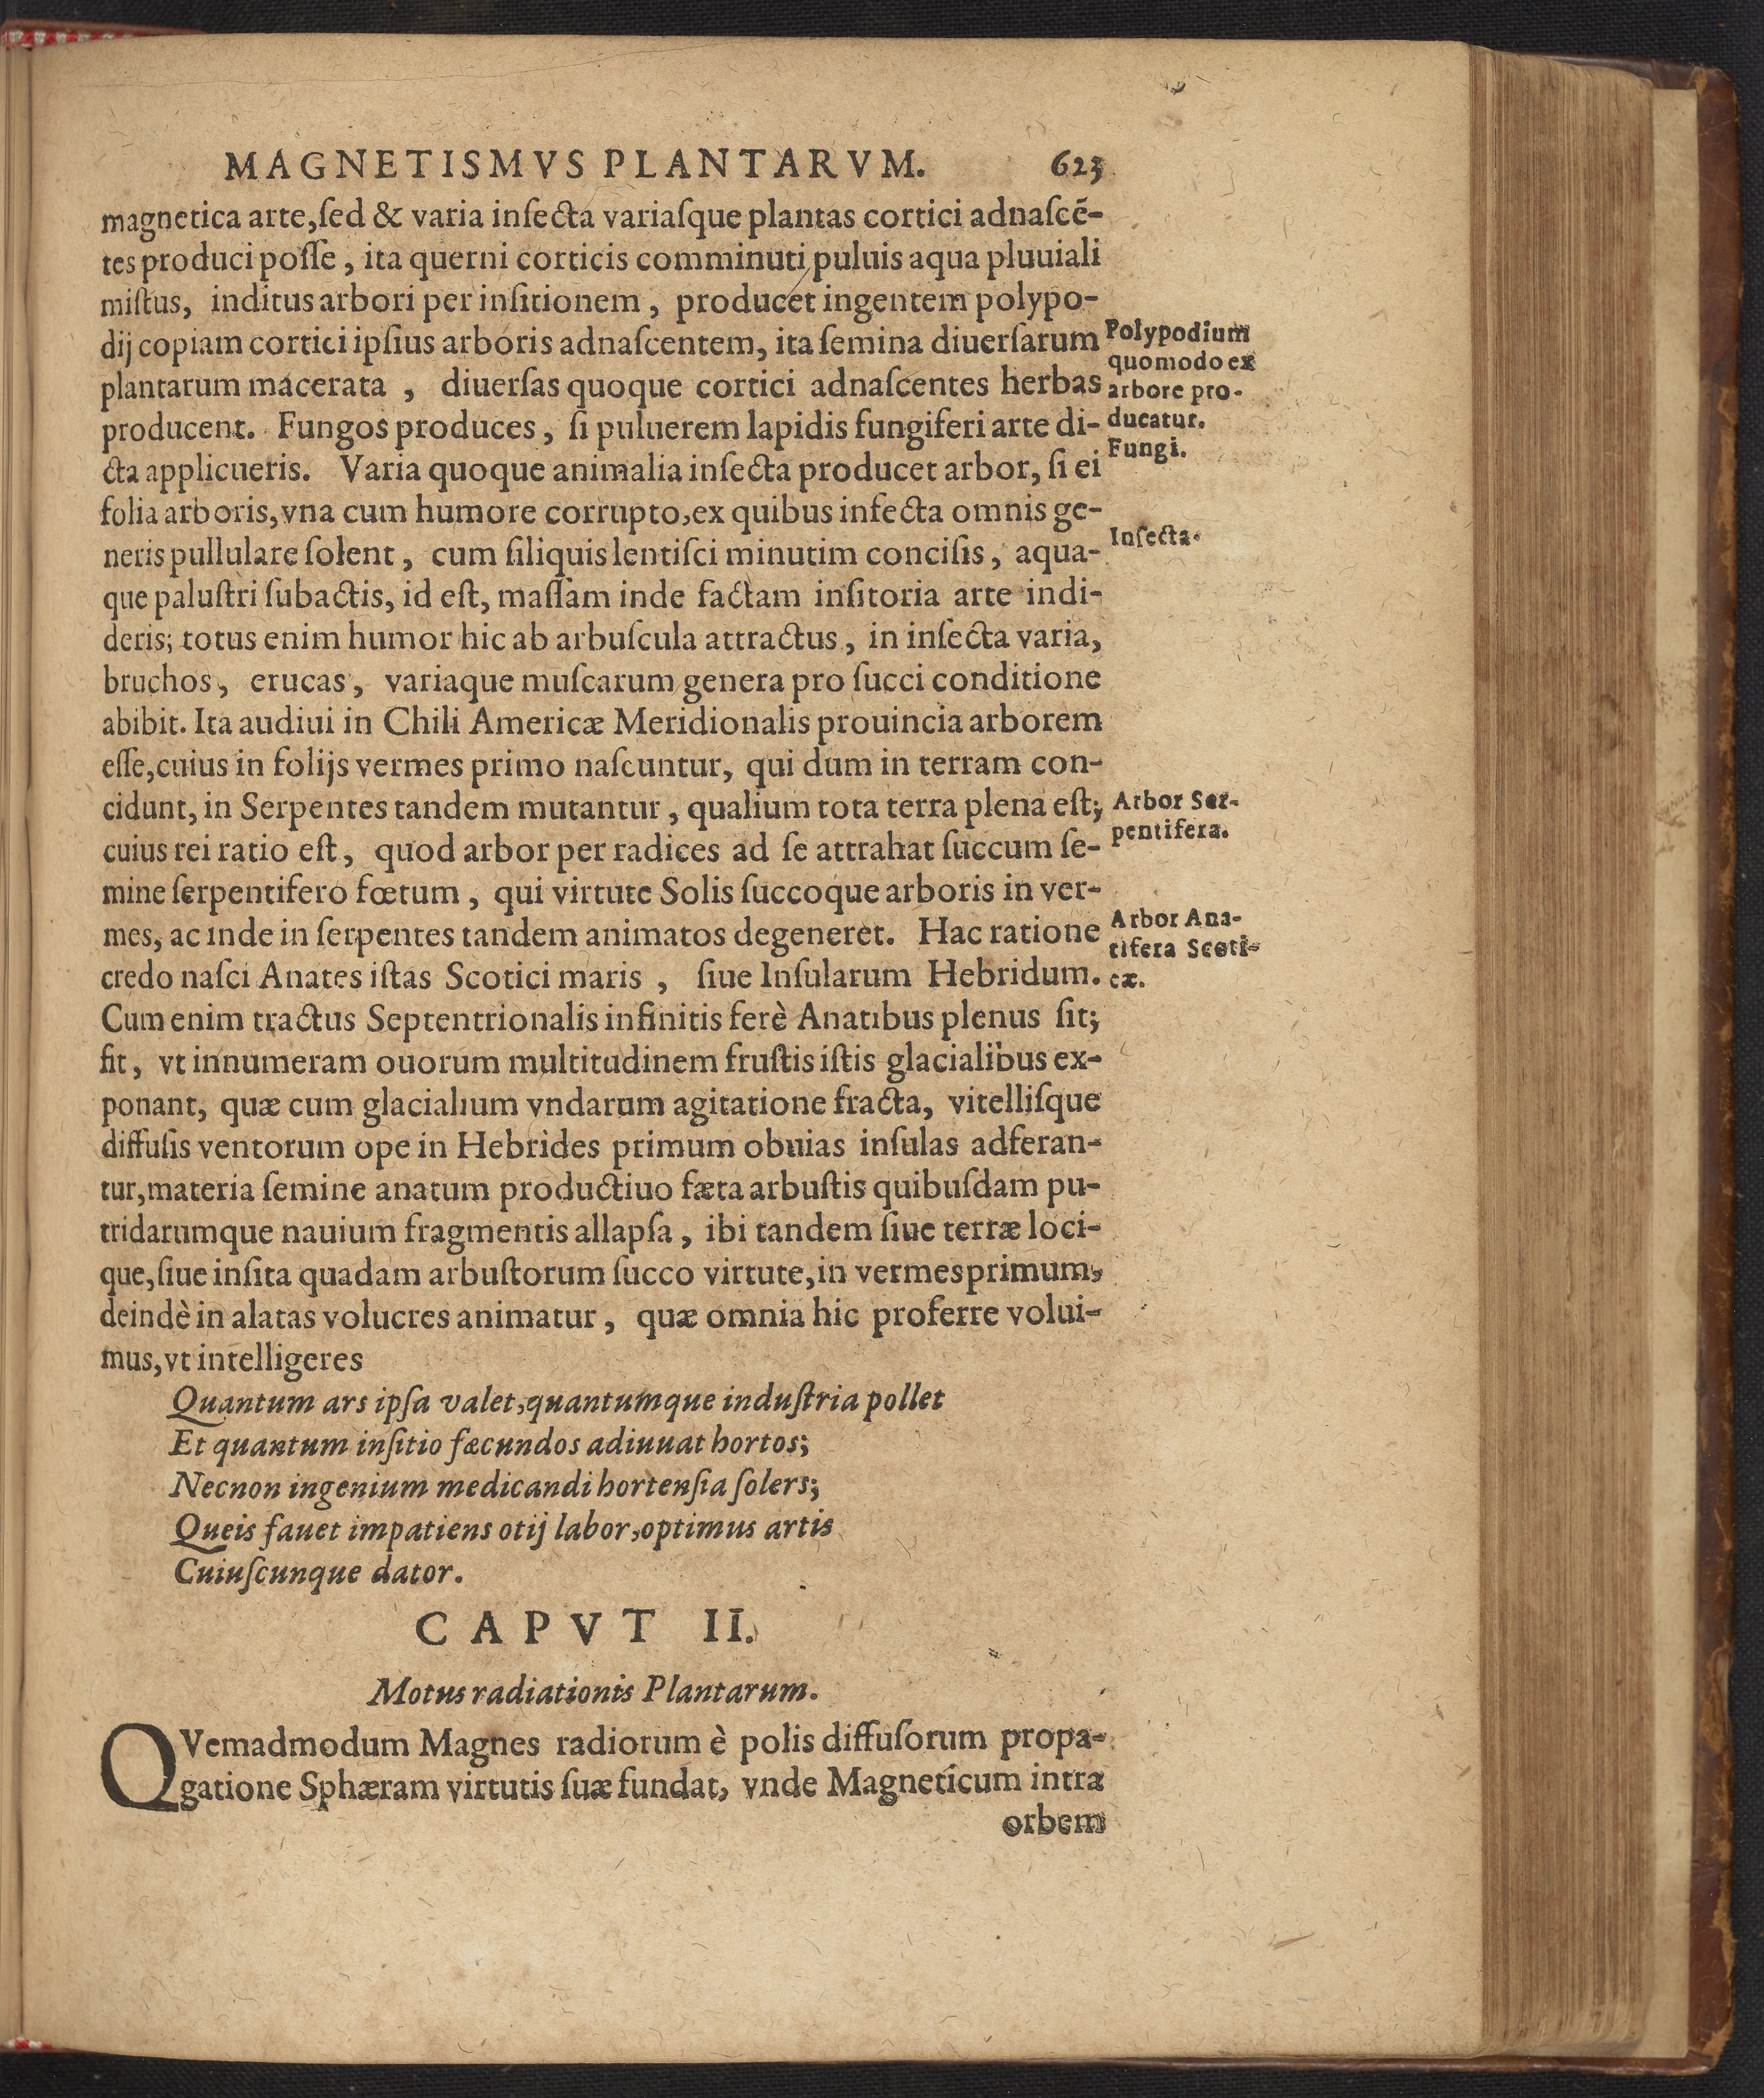 MAGNETISMVS PLANTARVM. 623
magnetica arte,ſed & varia inſecta variaſque plantas cortici adnaſcē-
tes produci poſſe, ita querni corticis comminuti puluis aqua pluuiali
miſtus, inditus arbori per inſitionem, producet ingentem polypo-
dij copiam cortici ipſius arboris adnaſcentem, ita ſemina diuerſarum
plantarum macerata, diuerſas quoque cortici adnaſcentes herbas
producent. Fungos produces, ſi puluerem lapidis fungiferi arte di-
cta applicueris. Varia quoque animalia inſecta producet arbor, ſi ei
folia arboris,vna cum humore corrupto,ex quibus inſecta omnis ge-
neris pullulare ſolent, cum ſiliquis lentiſci minutim conciſis, aqua-
que paluſtri ſubactis, id eſt, maſſam inde factam inſitoria arte indi-
deris; totus enim humor hic ab arbuſcula attractus, in inſecta varia,
bruchos, erucas, variaque muſcarum genera pro ſucci conditione
abibit. Ita audiui in Chili Americæ Meridionalis prouincia arborem
eſſe,cuius in folijs vermes primo naſcuntur, qui dum in terram con-
cidunt, in Serpentes tandem mutantur, qualium tota terra plena eſt;
cuius rei ratio eſt, quod arbor per radices ad ſe attrahat ſuccum ſe-
mine ſerpentifero fœtum, qui virtute Solis ſuccoque arboris in ver-
mes, ac inde in ſerpentes tandem animatos degeneret. Hac ratione
credo naſci Anates iſtas Scotici maris, ſiue Inſularum Hebridum.
Cum enim tractus Septentrionalis infinitis ferè Anatibus plenus ſit;
fit, vt innumeram ouorum multitudinem fruſtis iſtis glacialibus ex-
ponant, quæ cum glacialium vndarum agitatione fracta, vitelliſque
diffuſis ventorum ope in Hebrides primum obuias inſulas adferan-
tur,materia ſemine anatum productiuo fæta arbuſtis quibuſdam pu-
tridarumque nauium fragmentis allapſa, ibi tandem ſiue terræ loci-
que,ſiue inſita quadam arbuſtorum ſucco virtute,in vermes primum,
deindè in alatas volucres animatur, quæ omnia hic proferre volui-
mus,vt intelligeres
Quantum ars ipſa valet,quantumque induſtria pollet
Et quantum inſitio fæcundos adiuuat hortos;
Necnon ingenium medicandi hortenſia ſolers;
Queis fauet impatiens otij labor,optimus artis
Cuiuſcunque dator.
CAPVT II.
Motus radiationis Plantarum.
QVemadmodum Magnes radiorum è polis diffuſorum propa-
gatione Sphæram virtutis ſuæ fundat, vnde Magneticum intra
orbem
Polypodium
quomodo ex
arbore pro-
ducatur.
Fungi.
Inſecta.
Arbor Ser-
pentifera.
Arbor Ana-
tifera Scoti-
cæ.